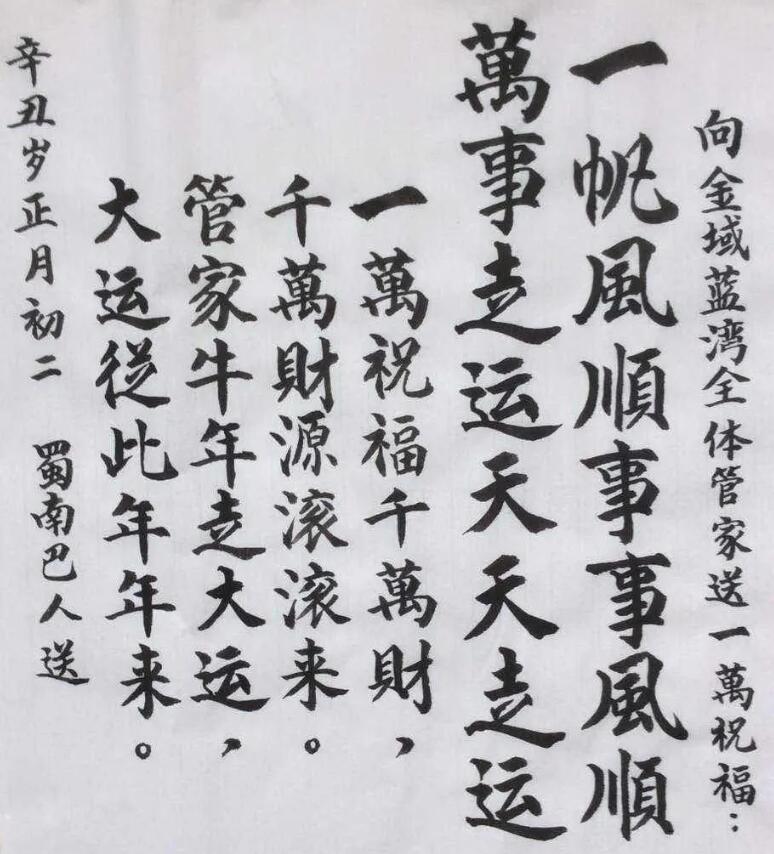 向金域蓝湾全体管家送一萬祝福：
一帆風順事事風順
萬事走运天天走运
一萬祝福千萬財，
千萬財源滚滚来。
管家牛年走大运，
大运從此年年来。
辛丑岁正月初二 蜀南巴人送